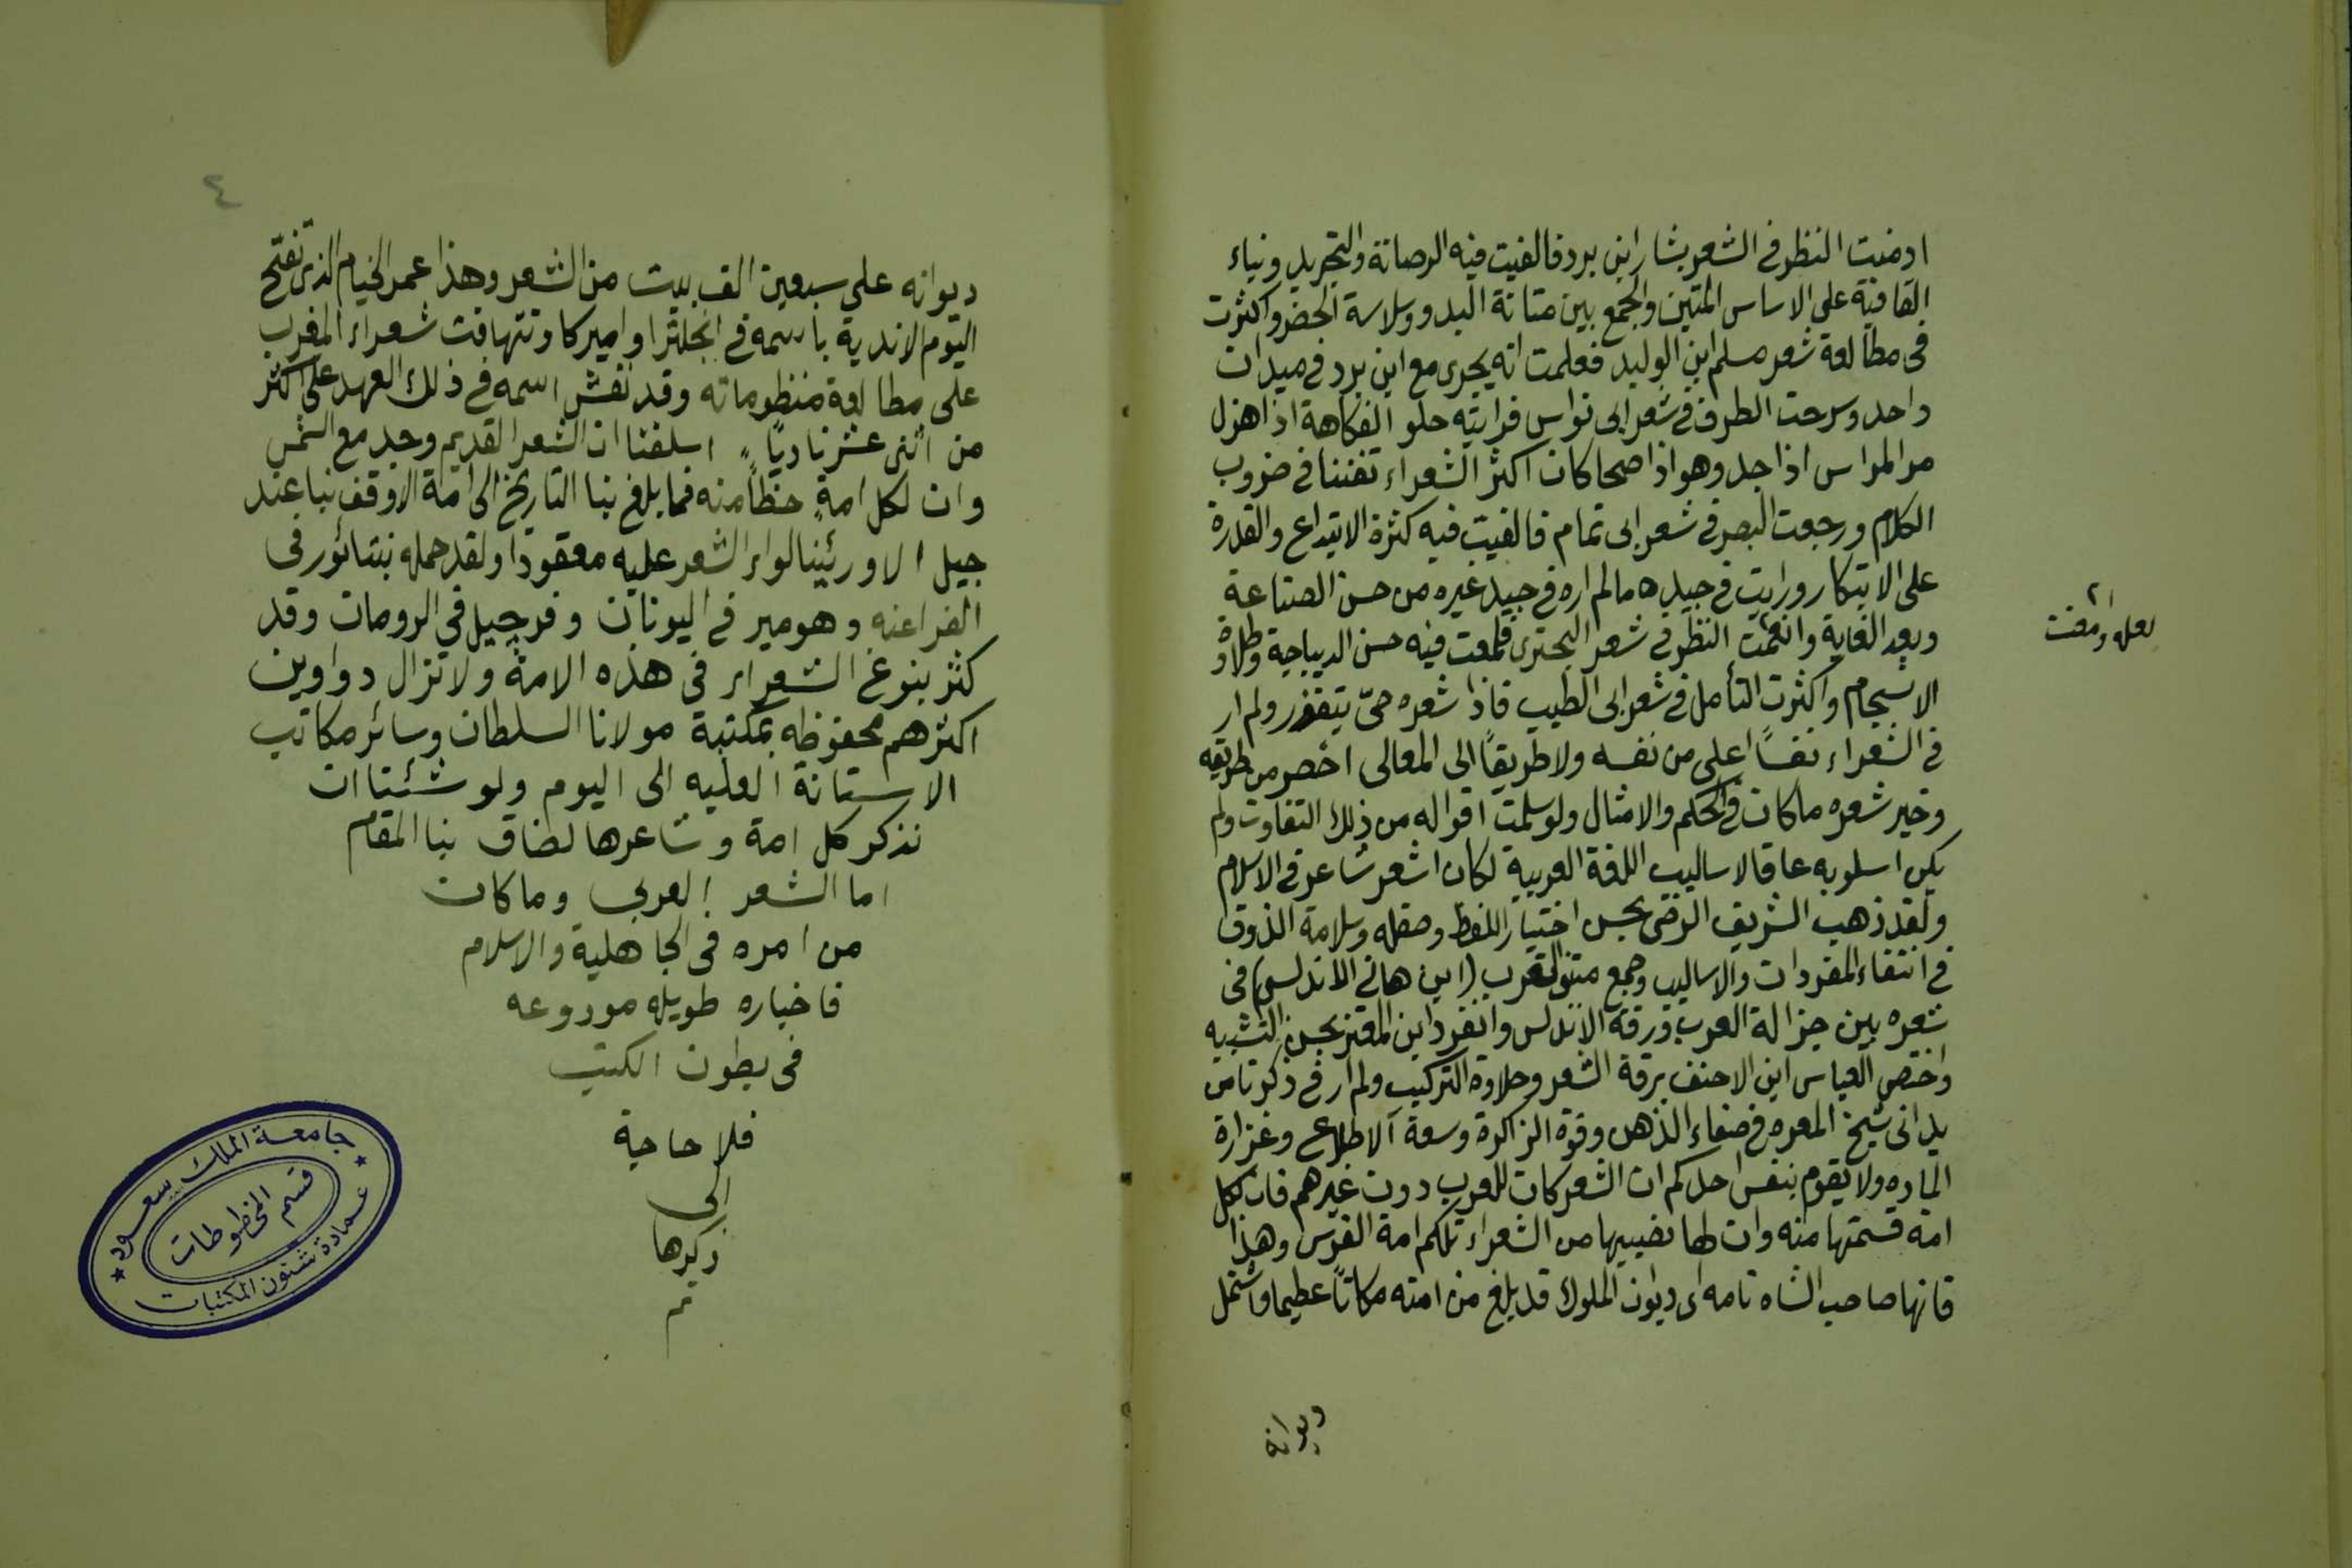 ادمنت النظر في الشعر بشار ابن برد فالفيت فيه الرصانة والتجريد وبناء
القافية على الاساس المتين والجمع بين متانة البدو وسلاسة الحضر واكثرت
في مطالعة شعر مسلم ابن الوليد فعلمت انه يجرى مع ابن برد في ميدان
واحد وسرحت الطرف في شعر ابى نواس فرايته حلو الفكاهة اذا هزل
مر المراس اذا جد وهو اذا صحا كان اكثر الشعراء تفننا في ضروب
الكلام ورجعت البصر في شعر ابى تمام فالفيت فيه كثرة الابتداع والقدرة
على الابتكار ورايت في جيده مالم اره في جيد غيره من حسن الصناعة
وبعد الغاية وانعمت النظر في شعر البحترى فلمعت فيه حسن الديباجية وطلاوة
الانسجام واكثرت التأمل في شعر ابى الطيب فاذا شعره حىّ يتقزز ولم ار
في الشعراء نفساً اعلى من نفسه ولا طريقاً الى المعالى اخصر من طريقه
وخير شعره ما كان في الحكم والامثال ولو سلمت اقواله من ذلك التفاوت ولم
يكن اسلوبه عاقا لاساليب اللغة العربية لكان اشعر شاعر في الاسلام
ولقد ذهب الشريف الرضى بحسن اختيار اللفظ وصقله وسلامة الذوق
في انتقاء المفردات والاساليب وجمع متنبى الغرب (ابن هانى الاندلسى) فى
شعره بين جزالة العرب ورقة الاندلس وانفرد ابن المعتز بحسن التشبيه
واختص العباس ابن الاحنف برقة الشعر وحلاوة التركيب ولم ار في ذكر ناس
يدانى شيخ المعره في صفاء الذهن وقوة الذاكرة وسعة الاطلاع وغزارة
الماده ولا يقوم بنفس احدكم ان الشعر كان للعرب دون غيرهم فان لكل
امة قسمتها منه وان لها نصيبها من الشعراء تلكم امة الفرس وهذا
قانها صاحب الشاه نامه اى ديوان الملوك قد بلغ من امته مكاناً عظيما واشتمل
ديوانه
لعله ومعنت
٤
ديوانه على سبعين الف بيت من الشعر وهذا عمر الخيام الذى تفتح
اليوم الاندية باسمه في انجلترا واميركا وتتهافت شعراء المغرب
على مطالعة منظوماته وقد نقش اسمه في ذلك العهد على اكثر
من اثنى عشر ناديًا اسلفنا ان الشعر القديم وجد مع الشمس
وان لكل امةٍ حظاً منه فما بلغ بنا التاريخ الى امة الا وقف بنا عند
جيل الا ورئينا لواء الشعر عليه معقودا ولقد حمله بنتائور في
الفراعنه وهومير في اليونان وفرجيل في الرومان وقد
كثر بنوغ الشعراء في هذه الامة ولا تزال دواوين
اكثرهم محفوظه بمكتبة مولانا السلطان وسائر مكاتب
الاستانة العليه الى اليوم ولو شئنا ان
نذكر كل امة وشاعرها لضاق بنا المقام
اما الشعر العربى وما كان
من امره فى الجاهلية والاسلام
فاخباره طويله مودوعه
فى بطون الكتب
فلا حاجة
الى
ذكرها
تم
جامعة الملك سعود
قسم المخطوطات
عمادة شئون المكتبات